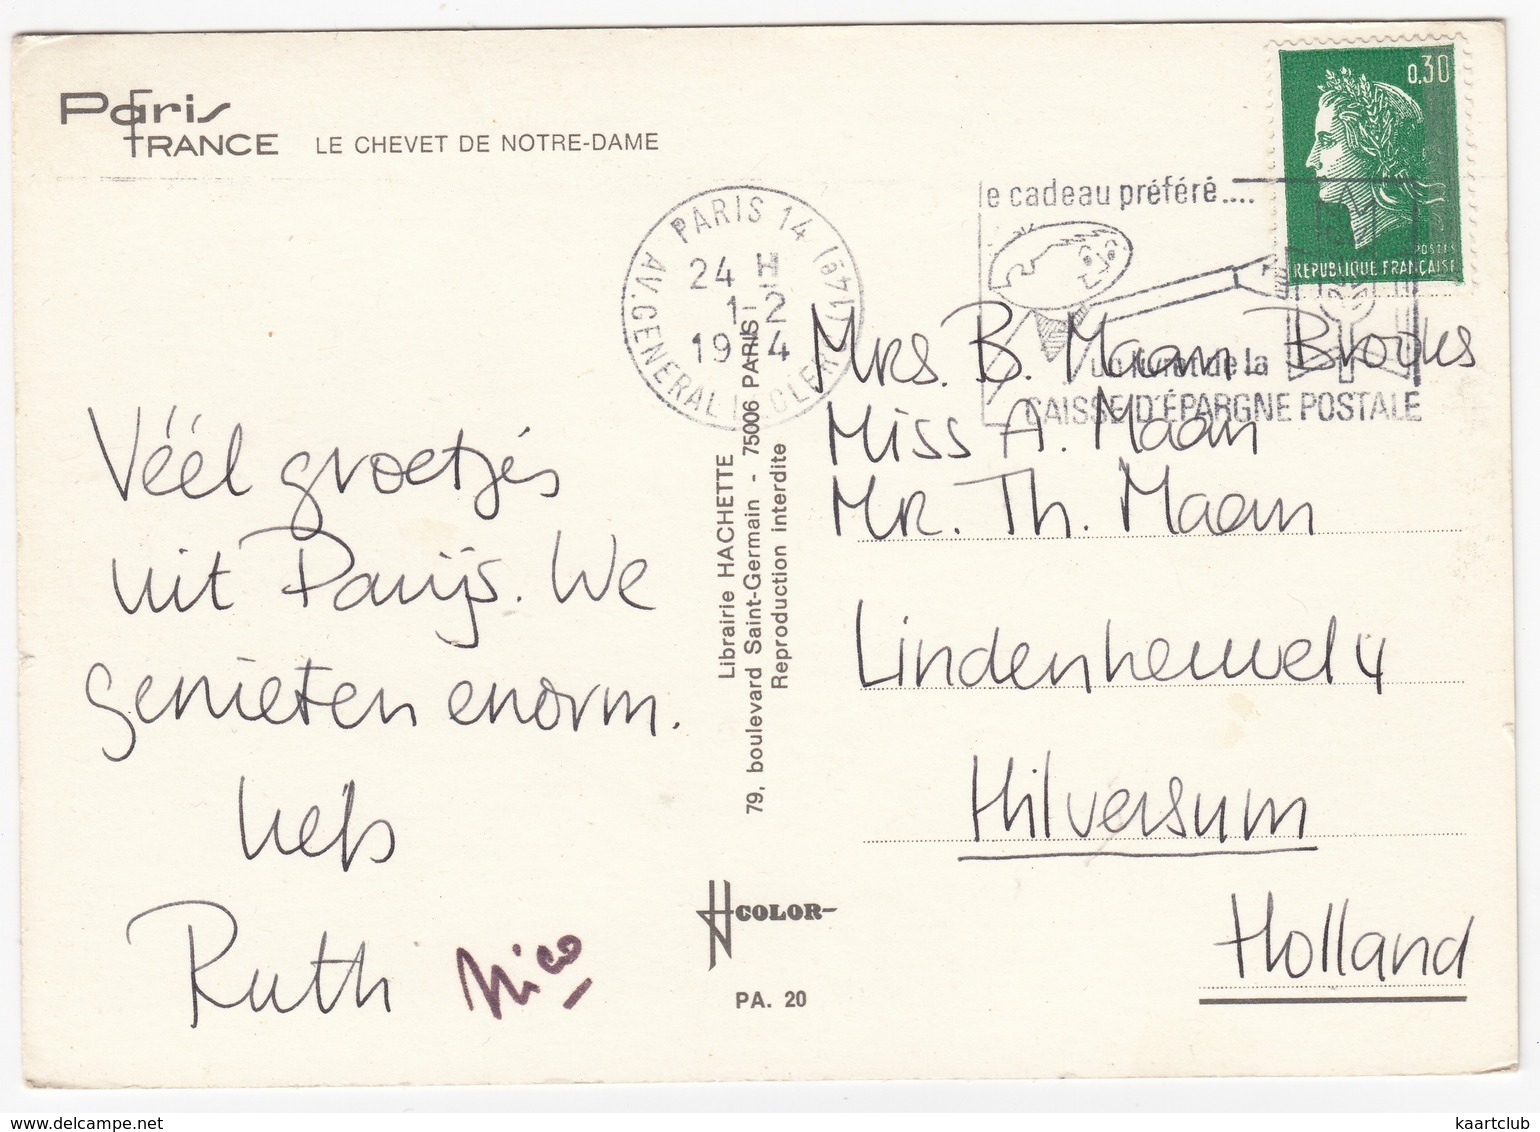 Paris
FRANCE LE CHEVET DE NOTRE-DAME
0,30
POSTES
REPUBLIQUE FRANÇAISE
PARIS 14 (14e)
AV. GENERAL LECLERC
24 H
1-2
1974
le cadeau préféré....
un livret de la
CAISSE D'ÉPARGNE POSTALE
Véél groetjes
uit Parijs. We
genieten enorm.
liefs
Ruth Nico
Librairie HACHETTE
79, boulevard Saint-Germain - 75006 PARIS
Reproduction interdite
HCOLOR
PA. 20
Mrs. B. Maan_Brooks
Miss A. Maan
Mr. Th. Maan
Lindenheuvel 4
Hilversum
Holland
delcampe.net
kaartclub